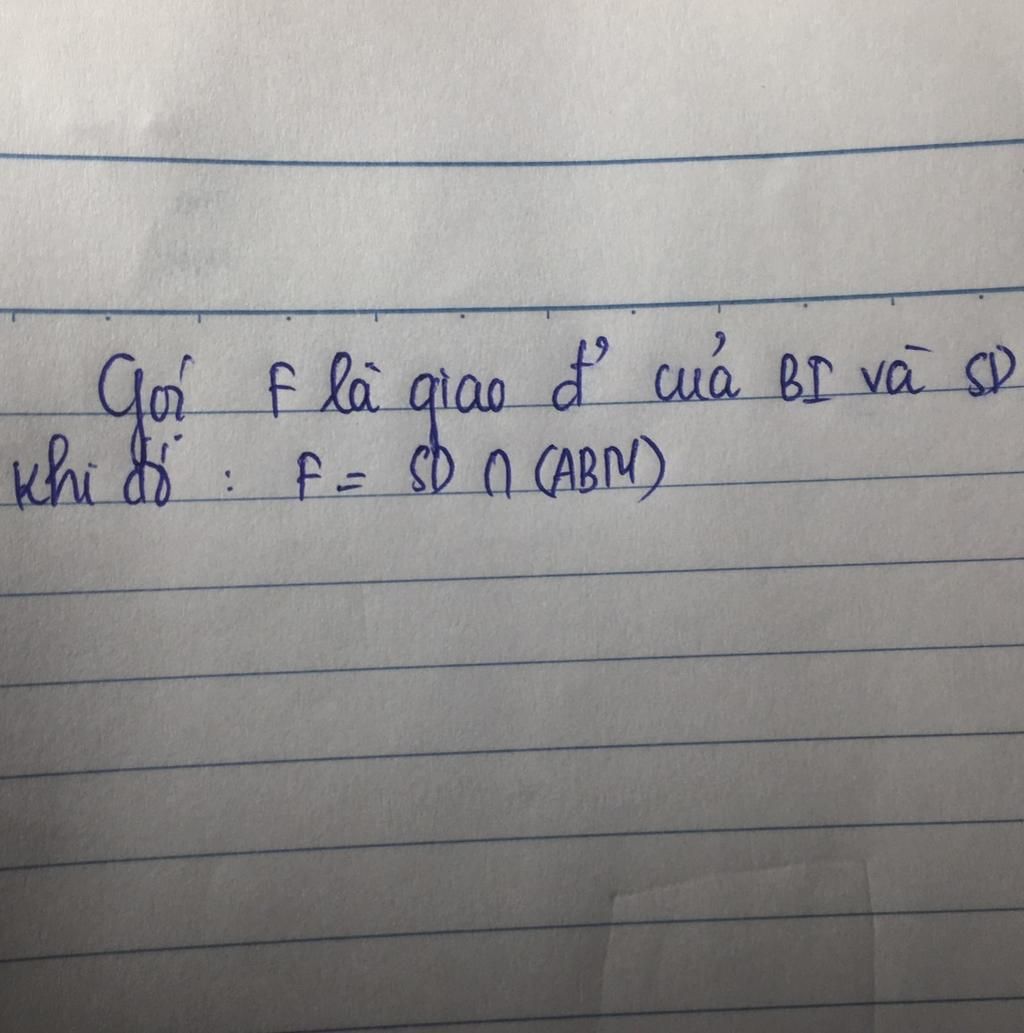 Gọi F là giao đ' của BI và SD
khi đó : F = SD ∩ (ABM)